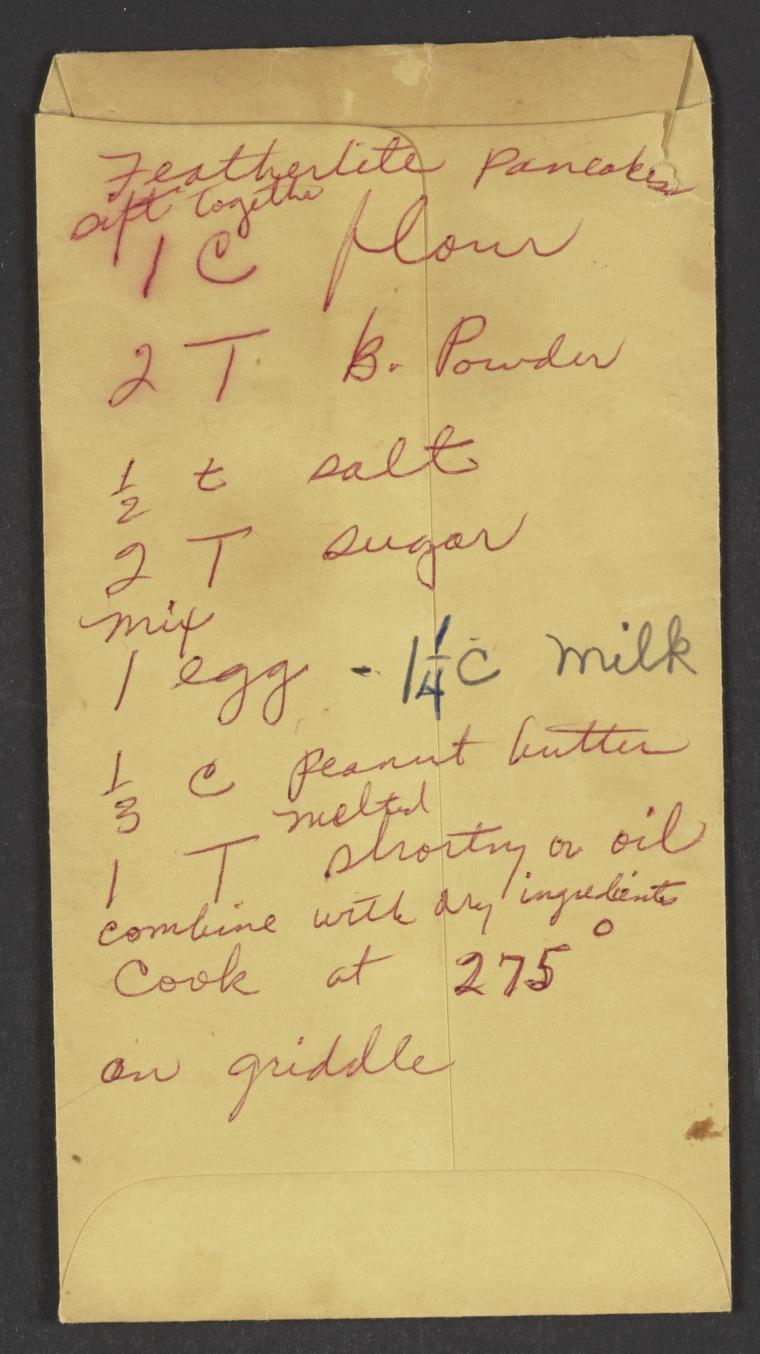 Featherlite Pancakes
Sift together
1 C flour
2 T B. Powder
1/2 t salt
2 T sugar
mix
1 egg - 1 1/4 C milk
1/3 C peanut butter
melted
1 T shortny or oil
combine with dry ingredients
Cook at 275°
on griddle